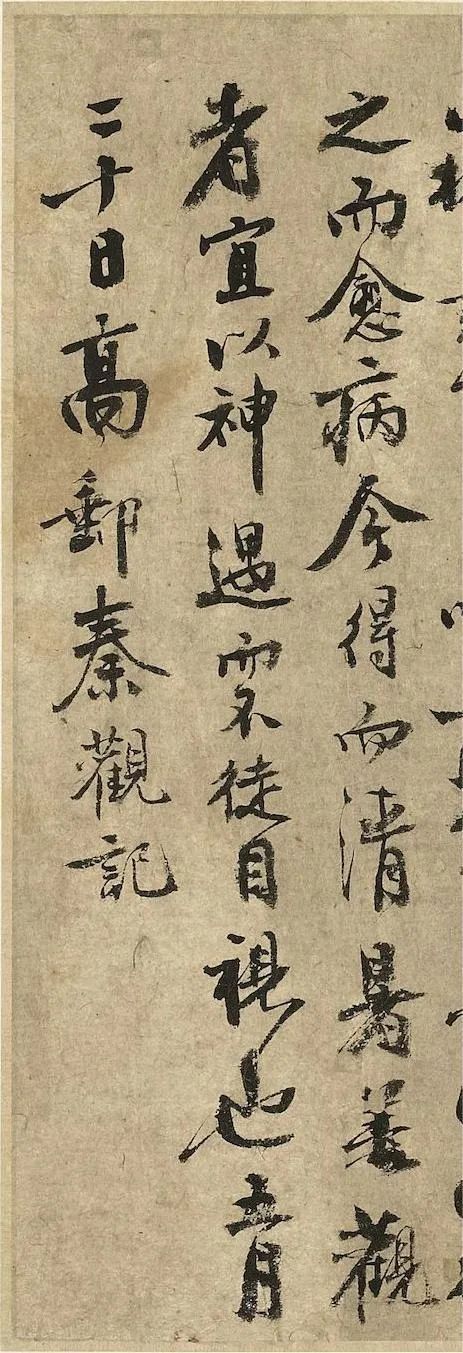 之而愈病今得而清暑善觀
者宜以神遇而不徒目視也五月
二十日高郵秦觀記